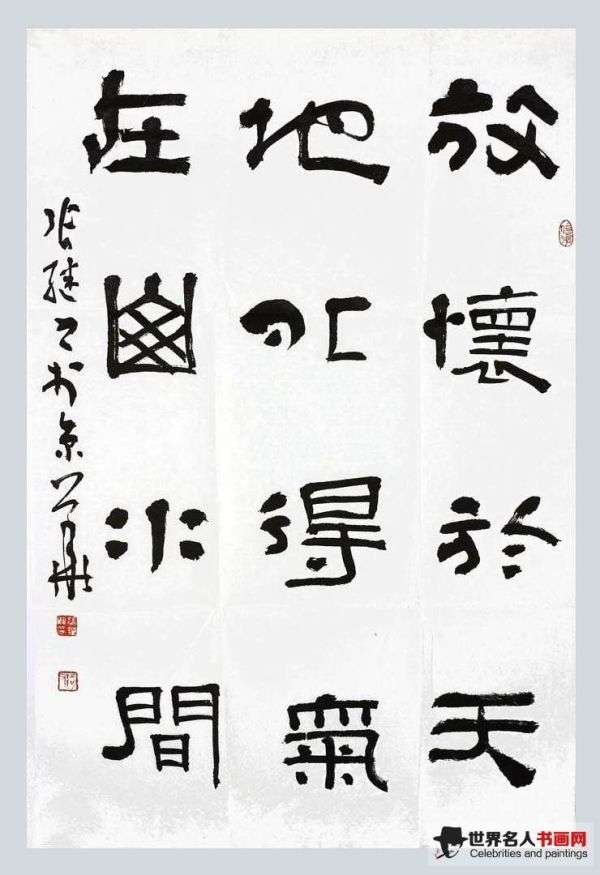 放懷於天
地外得氣
在山水間
張繼書於京華
世界名人书画网
Celebrities and paintings